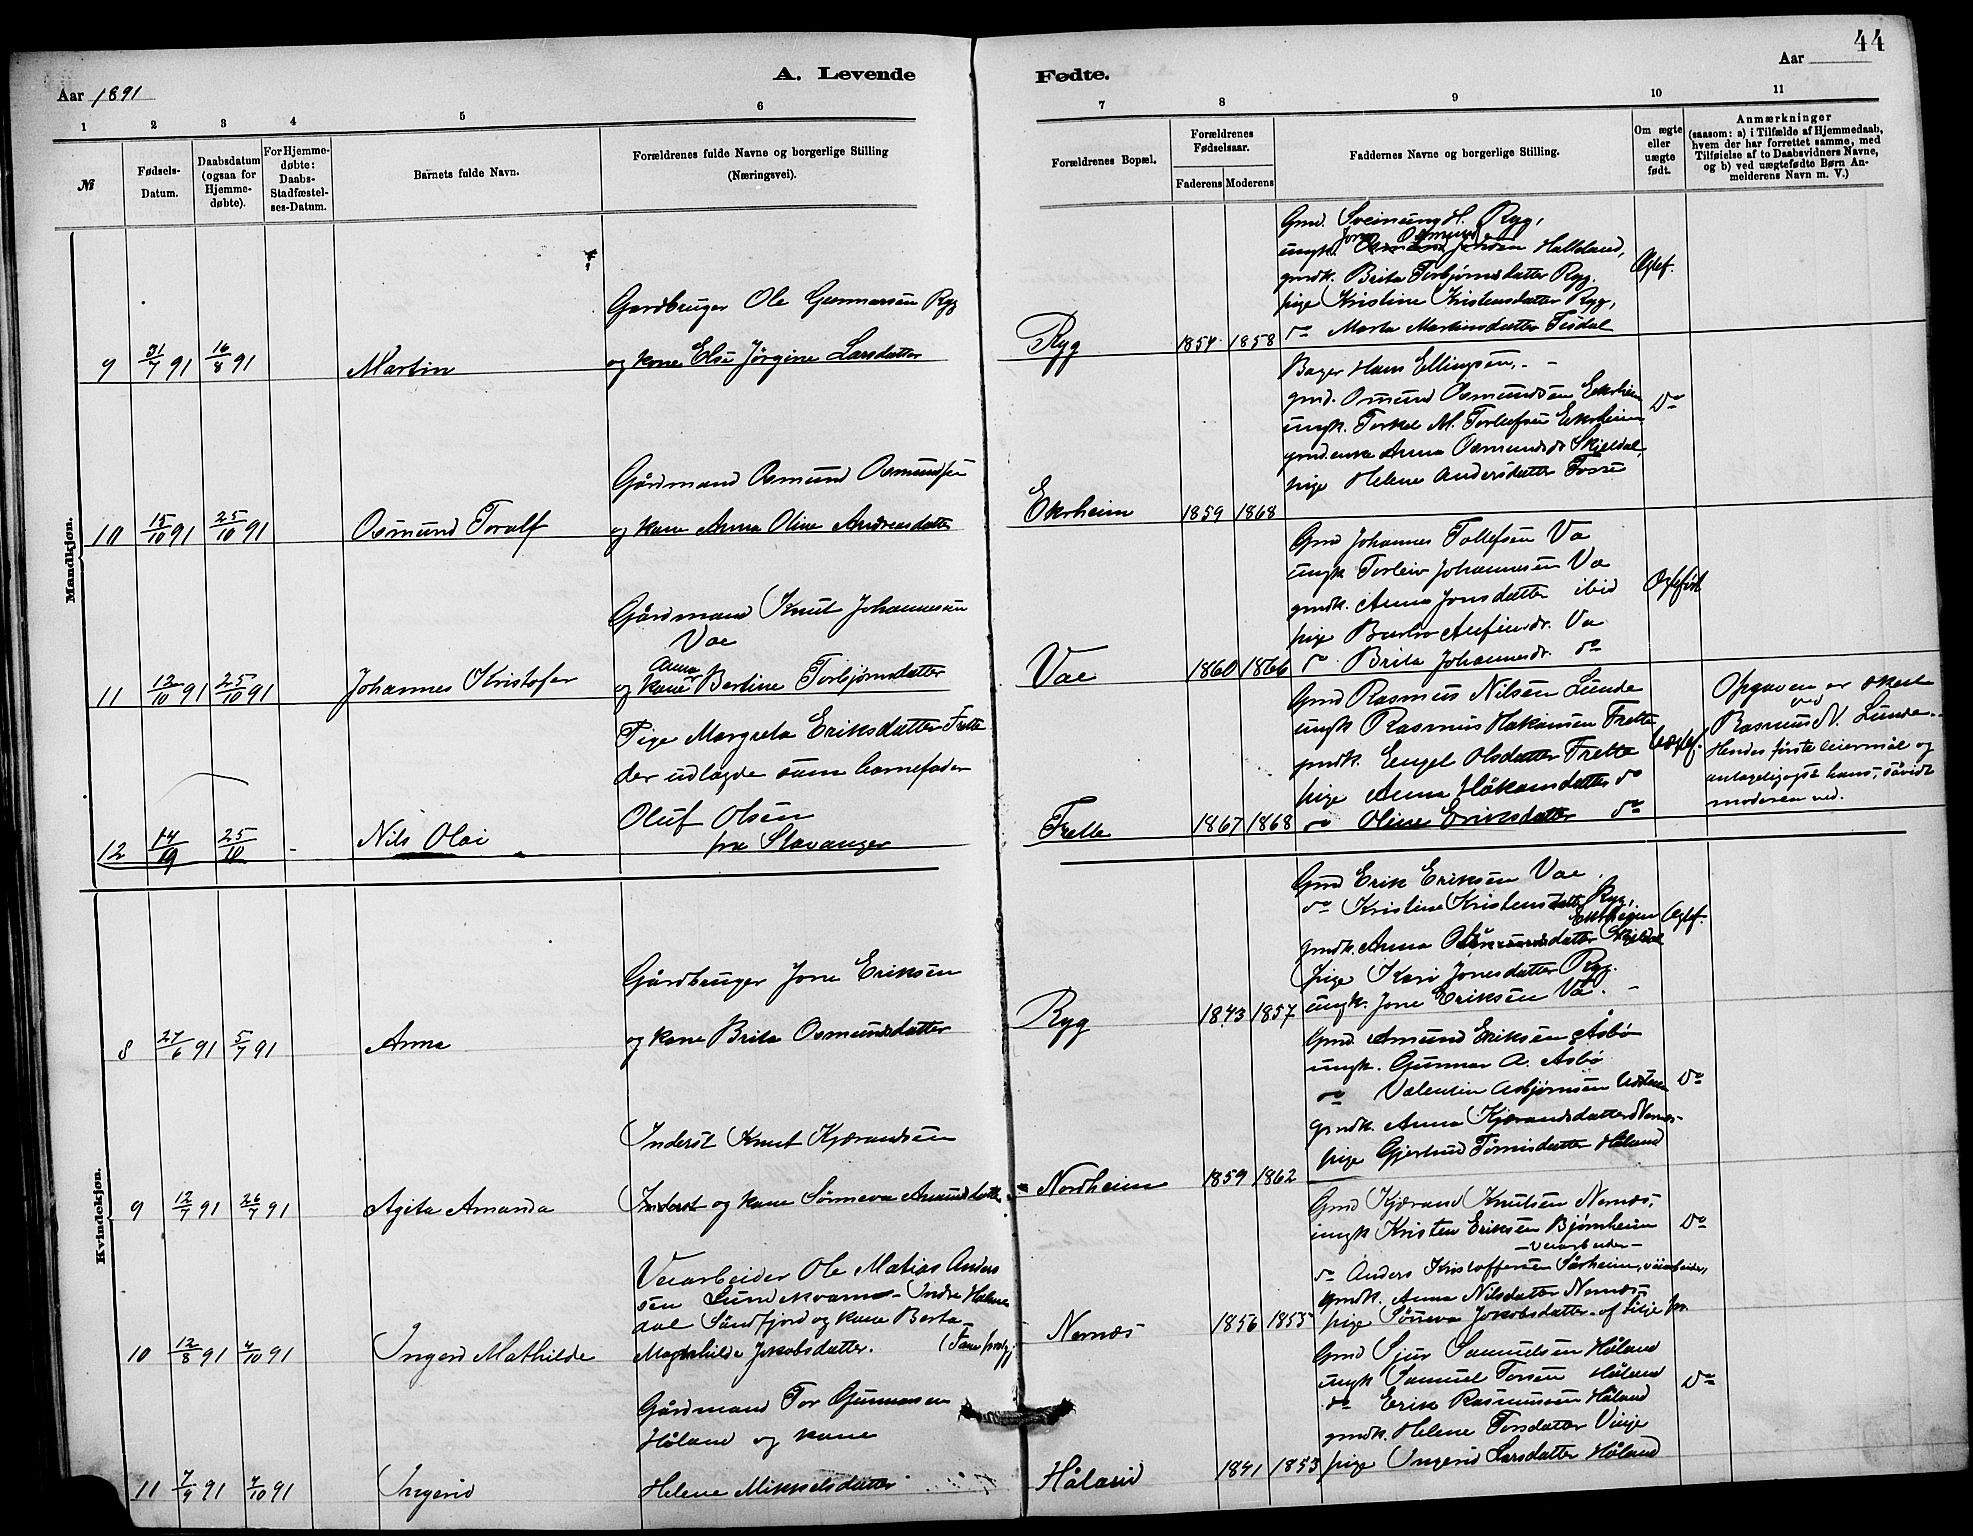 44
A. Levende Fødte.
Aar 1891
Aar
1 2 3 4 5 6 7 8 9 10 11
№
Fødsels-
Datum.
Daabsdatum
(ogsaa for
Hjemme-
døbte).
For Hjemme-
døbte:
Daabs-
Stadfæstel-
ses-Datum.
Barnets fulde Navn.
Forældrenes fulde Navne og borgerlige Stilling
(Næringsvei).
Forældrenes Bopæl.
Forældrenes
Fødselsaar.
Faderens Moderens
Faddernes Navne og borgerlige Stilling
Om ægte
eller
uægte
født.
Anmærkninger
(saasom: a) i Tilfælde af Hjemmedaab,
hvem der har forrettet samme, med
Tilføielse af to Daabsvidners Navne,
og b) ved uægtefødte Børn An-
melderens Navn m. V.)
Mandkjøn.
9 31/7 91 16/8 91 Martin
Gardbruger Ole Gunnarsen Ryg
og kone Else Jørgine Larsdatter
Ryg 1854 1858
Gmd. Sveinung H. Ryg,
ungk. Jone Osmund Halleland,
gmdk. Brita Torbjørnsdatter Ryg.
pige Kristine Kristensdatter Ryg,
do Marta Martinsdatter Tisdal
Ægtef.
10 15/10 91 25/10 91 Osmund Toralf
Gårdmand Osmund Osmundsen
og kone Anna Oline Andreasdatter
Ekrheim 1859 1868
Bager Hans Ellingsen,
gmd. Omund Osmundsen Ekrheim
ungk. Torkel M. Torlefsen Ekrheim
gmd.enke Anna Osmundsdr Skjeldal
pige Helene Andersdatter Tosse
Do
11 12/10 91 25/10 91 Johannes Kristofer
Gårdmand Knut Johannesen
Vae
og kone Anna Bertine Torbjørnsdatter
Vae 1860 1866
Gmd Johannes Tollefsen Va
ungk Torleiv Johannesen Va
gmdk. Anna Jonsdatter ibid
pige Barbro Anfinsdr. Va
do Brita Johannesdr. do
Ægtefødt
12 14/10 25/10 - Nils Olai
Pige Margreta Eriksdatter Frette
der udlagde som barnefader
Oluf Olsen
fra Stavanger
Frette 1867 1868
Gmd Rasmus Nilsen Lunde
ungk Rasmus Hakonsen Frette
gmdk. Engel Olsdatter Frette
pige Anna Håkonsdatter do
do Oline Eriksdatter do
Uægtef.
Opgaven er skeet
ved
Rasmus N. Lunde.
Hendes første leiermål og
antageligogså hans, såvidt
moderen ved.
Kvindekjøn.
8 27/6 91 5/7 91 Anna
Gårdbruger Jone Eriksen
og kone Brita Osmundsdatter
Ryg 1843 1857
Gmd Erik Eriksen Vae.
do Kristine Kristensdatter Ryg,
gmdk. Anna Osmundsdatter Skjeldal
pige Kari Jonesdatter Ryg.
ungk. Jone Eriksen Va.
Ægtef.
9 12/7 91 26/7 91 Agita Amanda
Inderst Knut Kjærandsen
Inderst og kone Sønneva Amundsdatter
Nordheim 1859 1862
Gmd. Amund Eriksen Åsbø
ungk. Gunnar A. Åsbø
do Valentin Asbjørnsen
gmdk. Anna Kjærandsdatter Nernæs
pige Gjertrud Tormisdatter Håland
Do
10 12/8 91 4/10 91 Ingerd Mathilde
Veiarbeider Ole Matias Anders
sen Lundekvam - Indre Holme
dal Søndfjord og kone Berta
Magnhilde Jakobsdatter.
Nernæs 1856 1855
Gmd Kjærand Knutsen Nernæs,
ungk Kristen Eriksen Bjørnheim
- Veiarbeider -
do Anders Kristoffersen Sårheim, veiarbeider,
gmdk. Anna Nilsdatter Nernæs
pige Sønneva Jakobsdatter
Do
11 7/9 91 4/10 91 Ingerid
Gårdmand Tor Gunnarsen
Håland og kone
Helene Mikkelsdatter
Håland 1841 1853
Gmd Sjur Samuelsen Håland
ungk Samuel Torsen Håland
do Erik Rasmussen Håland
gmdk. Helene Torsdatter Vinje
pige Ingerid Larsdatter Håland
Do